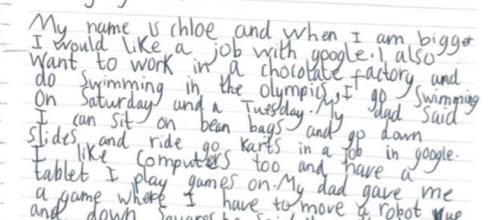 My name is chloe and when I am bigger
I would like a job with google. I also
want to work in a chocolate factory and
do swimming in the olympics. I go swimming
on Saturday and a Tuesday. My dad said
I can sit on bean bags and go down
slides and ride go karts in a job in google.
I like computers too and have a
tablet I play games on. My dad gave me
a game where I have to move a robot
and down squares